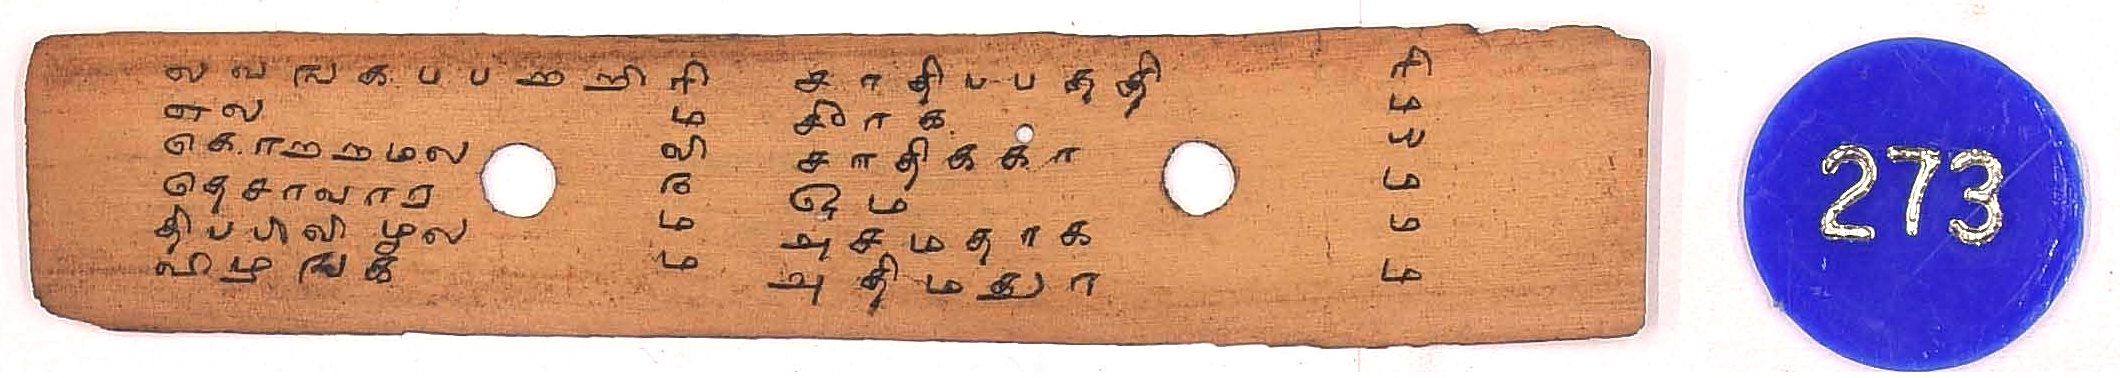 லவஙகபபறறி ரி சாதிபபததி ரி
ஏல ம சிரக ம
கொறறமல லி சாதிககா ய
தெசாவார ம ஓம ம
திபபிலிமூல ம அசமதாக ம
விழஙக ம அதிமதுர ம
273